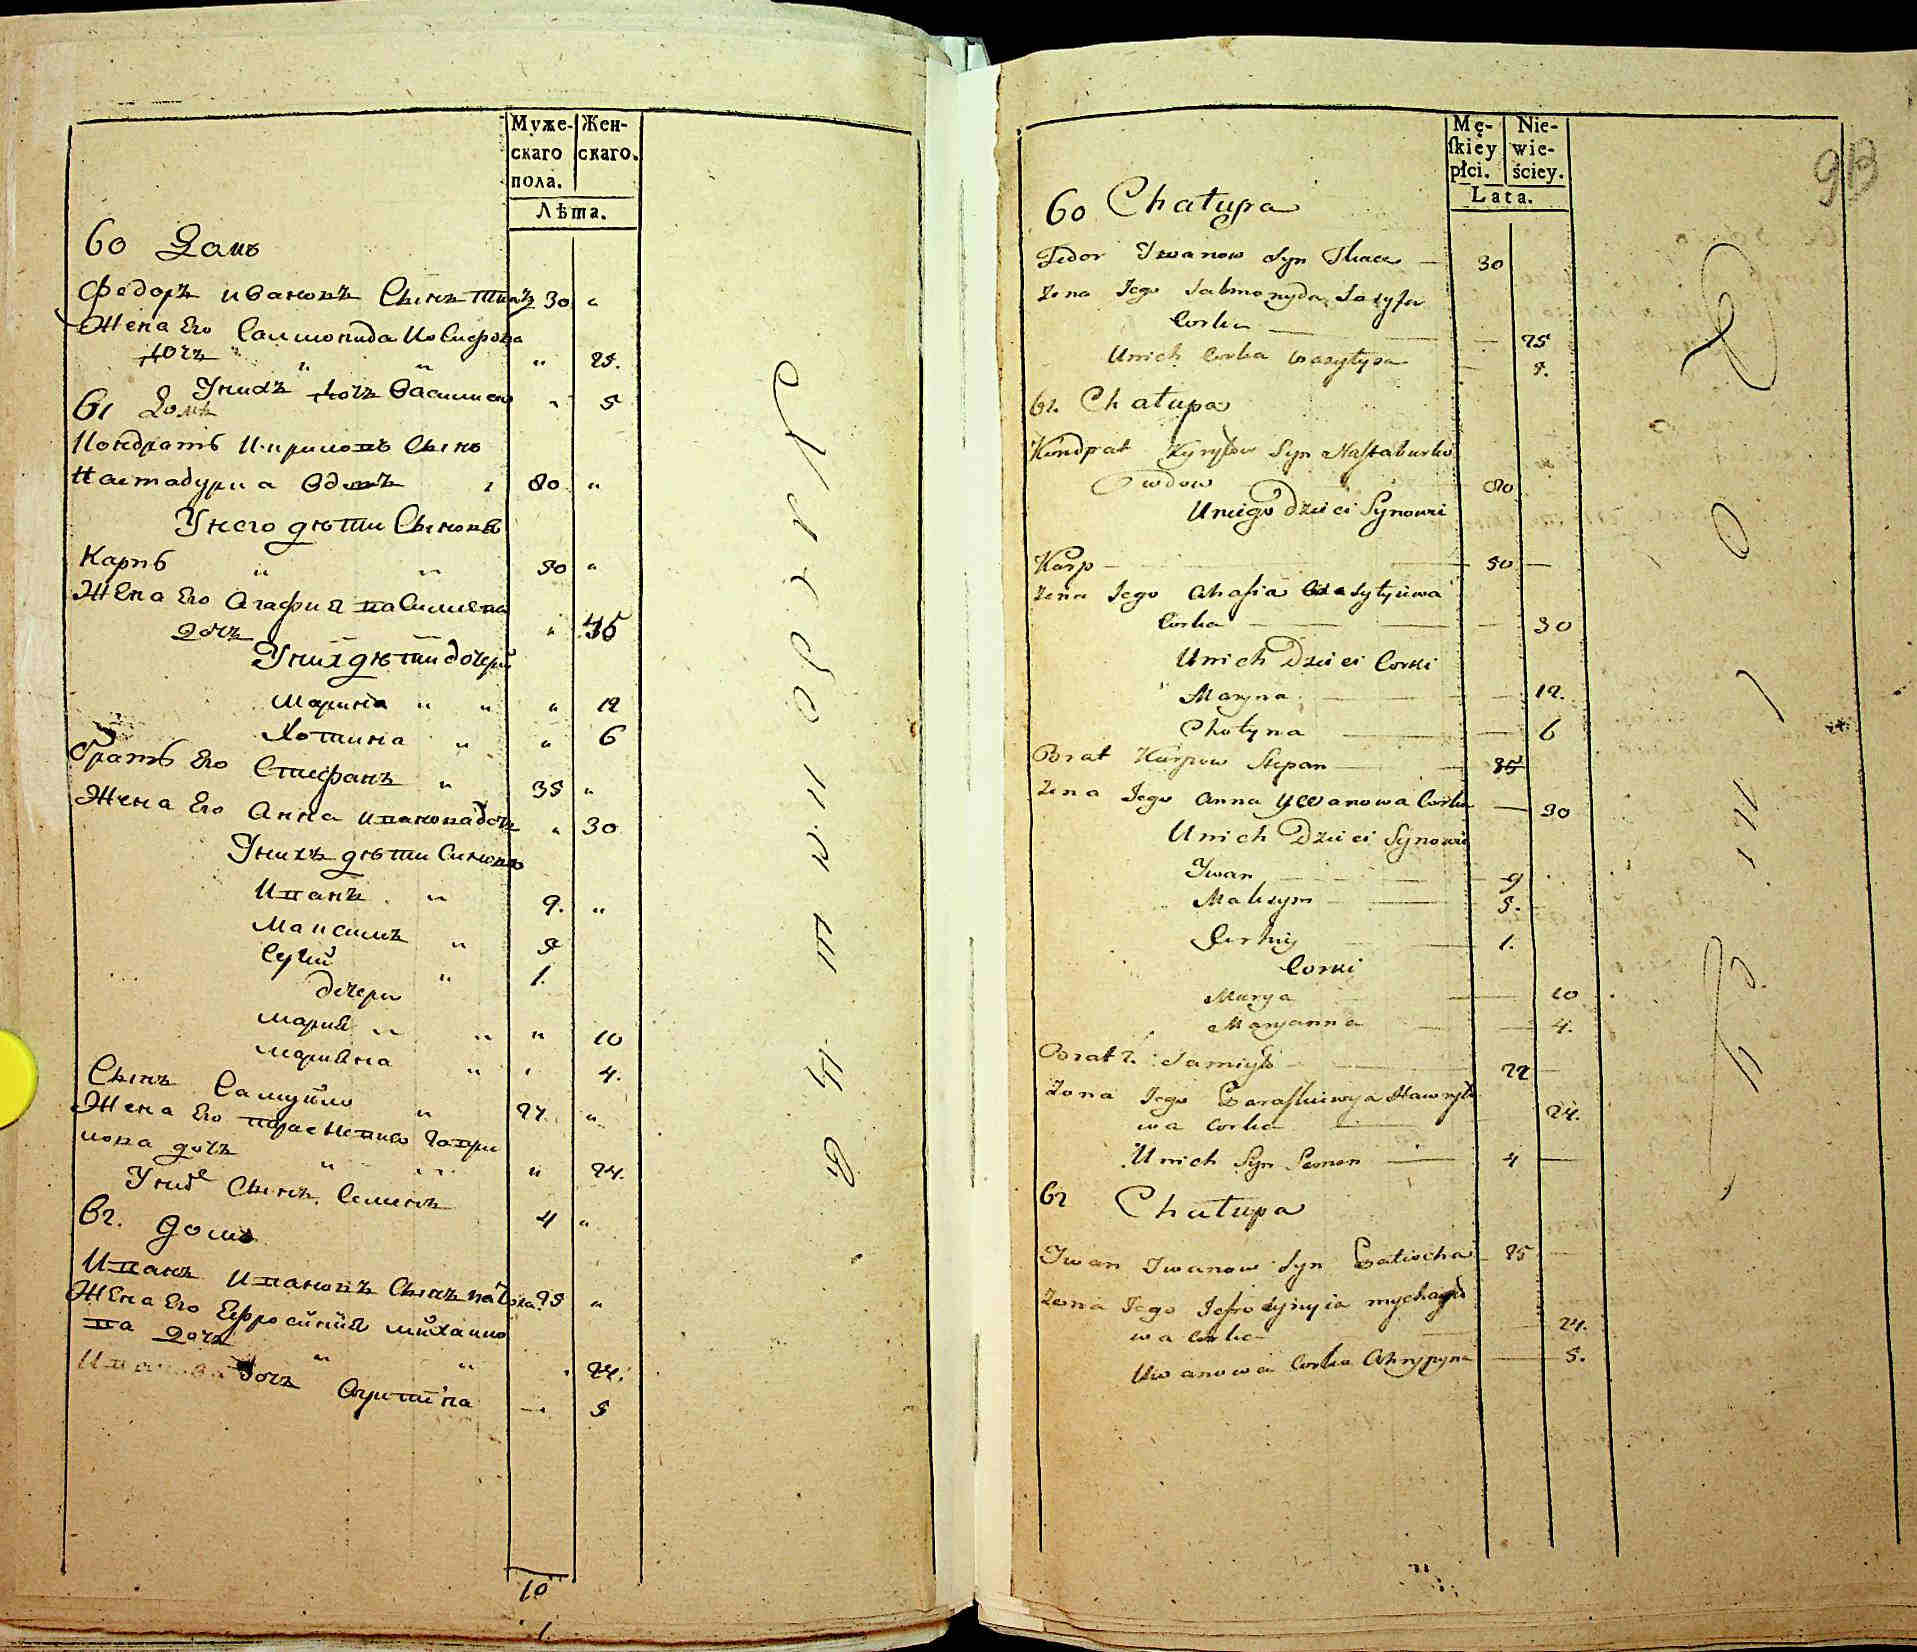 Муже-
скаго
пола.
Жен-
скаго.
Лѣта.
60 Домъ
Федоръ Ивановъ Сынъ Ткачъ 30 "
Жена Его Салмонида Иосифова
дочъ " " " 25.
Унихъ дочъ Василиса " 5
61 Домъ
Кондратъ Кириловъ Сынъ
Настабурка Вдовъ 80 "
Унего дѣти Сыновъя
Карпъ " " 50 "
Жена Его Агафия Василиева
Дочъ " 45
Унихъ дѣти дочери
Марина " " " 12
Хотина " " 6
братъ Его Стефанъ " 35 "
Жена Его Анна Иванова дочъ " 30
Унихъ дѣти Синовъя
Иванъ " 9. "
Максимъ " 5
Сергий " 1.
дочери
Мария " " " 10
Мариана " " 4.
Сынъ Самуйло " 22 "
Жена Его Параскевия Гаври
лова дочъ " " " 24.
Унихъ Сынъ Семенъ 4 "
62. Домъ
Иванъ Ивановъ Сынъ 25 "
Жена Его Ефросиния Михаило
ва Дочъ " " " 24.
дочъ Агрипина 5
10
1
Mę-
ſkiey
płci.
Nie-
wie-
ściey.
Lata.
93
60 Chałupa
Fedor Iwanow Syn Tkacz — 30
Żona Jego Salmonyda Jozyfa
Corka — 25
Unich Corka Wasylysa — 5.
61. Chałupa
Kondrat Kyryłow Syn Nastaburka
wdow 80
Uniego Dzieci Synowi
Karp — 50 —
Żona Jego Ahafia Wasylyiewa
Corka — 30
Unich Dzieci Corki
Maryna — 12.
Chotyna — 6
Brat Karpow Stepan — 35
Żona Jego Anna Ywanowa Corka — 30
Unich Dzieci Synowi
Iwan — 9
Maksym — 5.
Serhiy — 1.
Corki
Marya — 10
Maryanna — 4.
Brat 2. Samiyło — 22 —
Żona Jego Paraskiewya Hawryło
wa Corka — 24.
Unich Syn Semen — 4 —
62 Chałupa
Iwan Iwanow Syn 25 —
Żona Jego Jefrozynyia Mychayło
wa Corka — 24.
Iwanowa Corka Ahrypyna — 5.